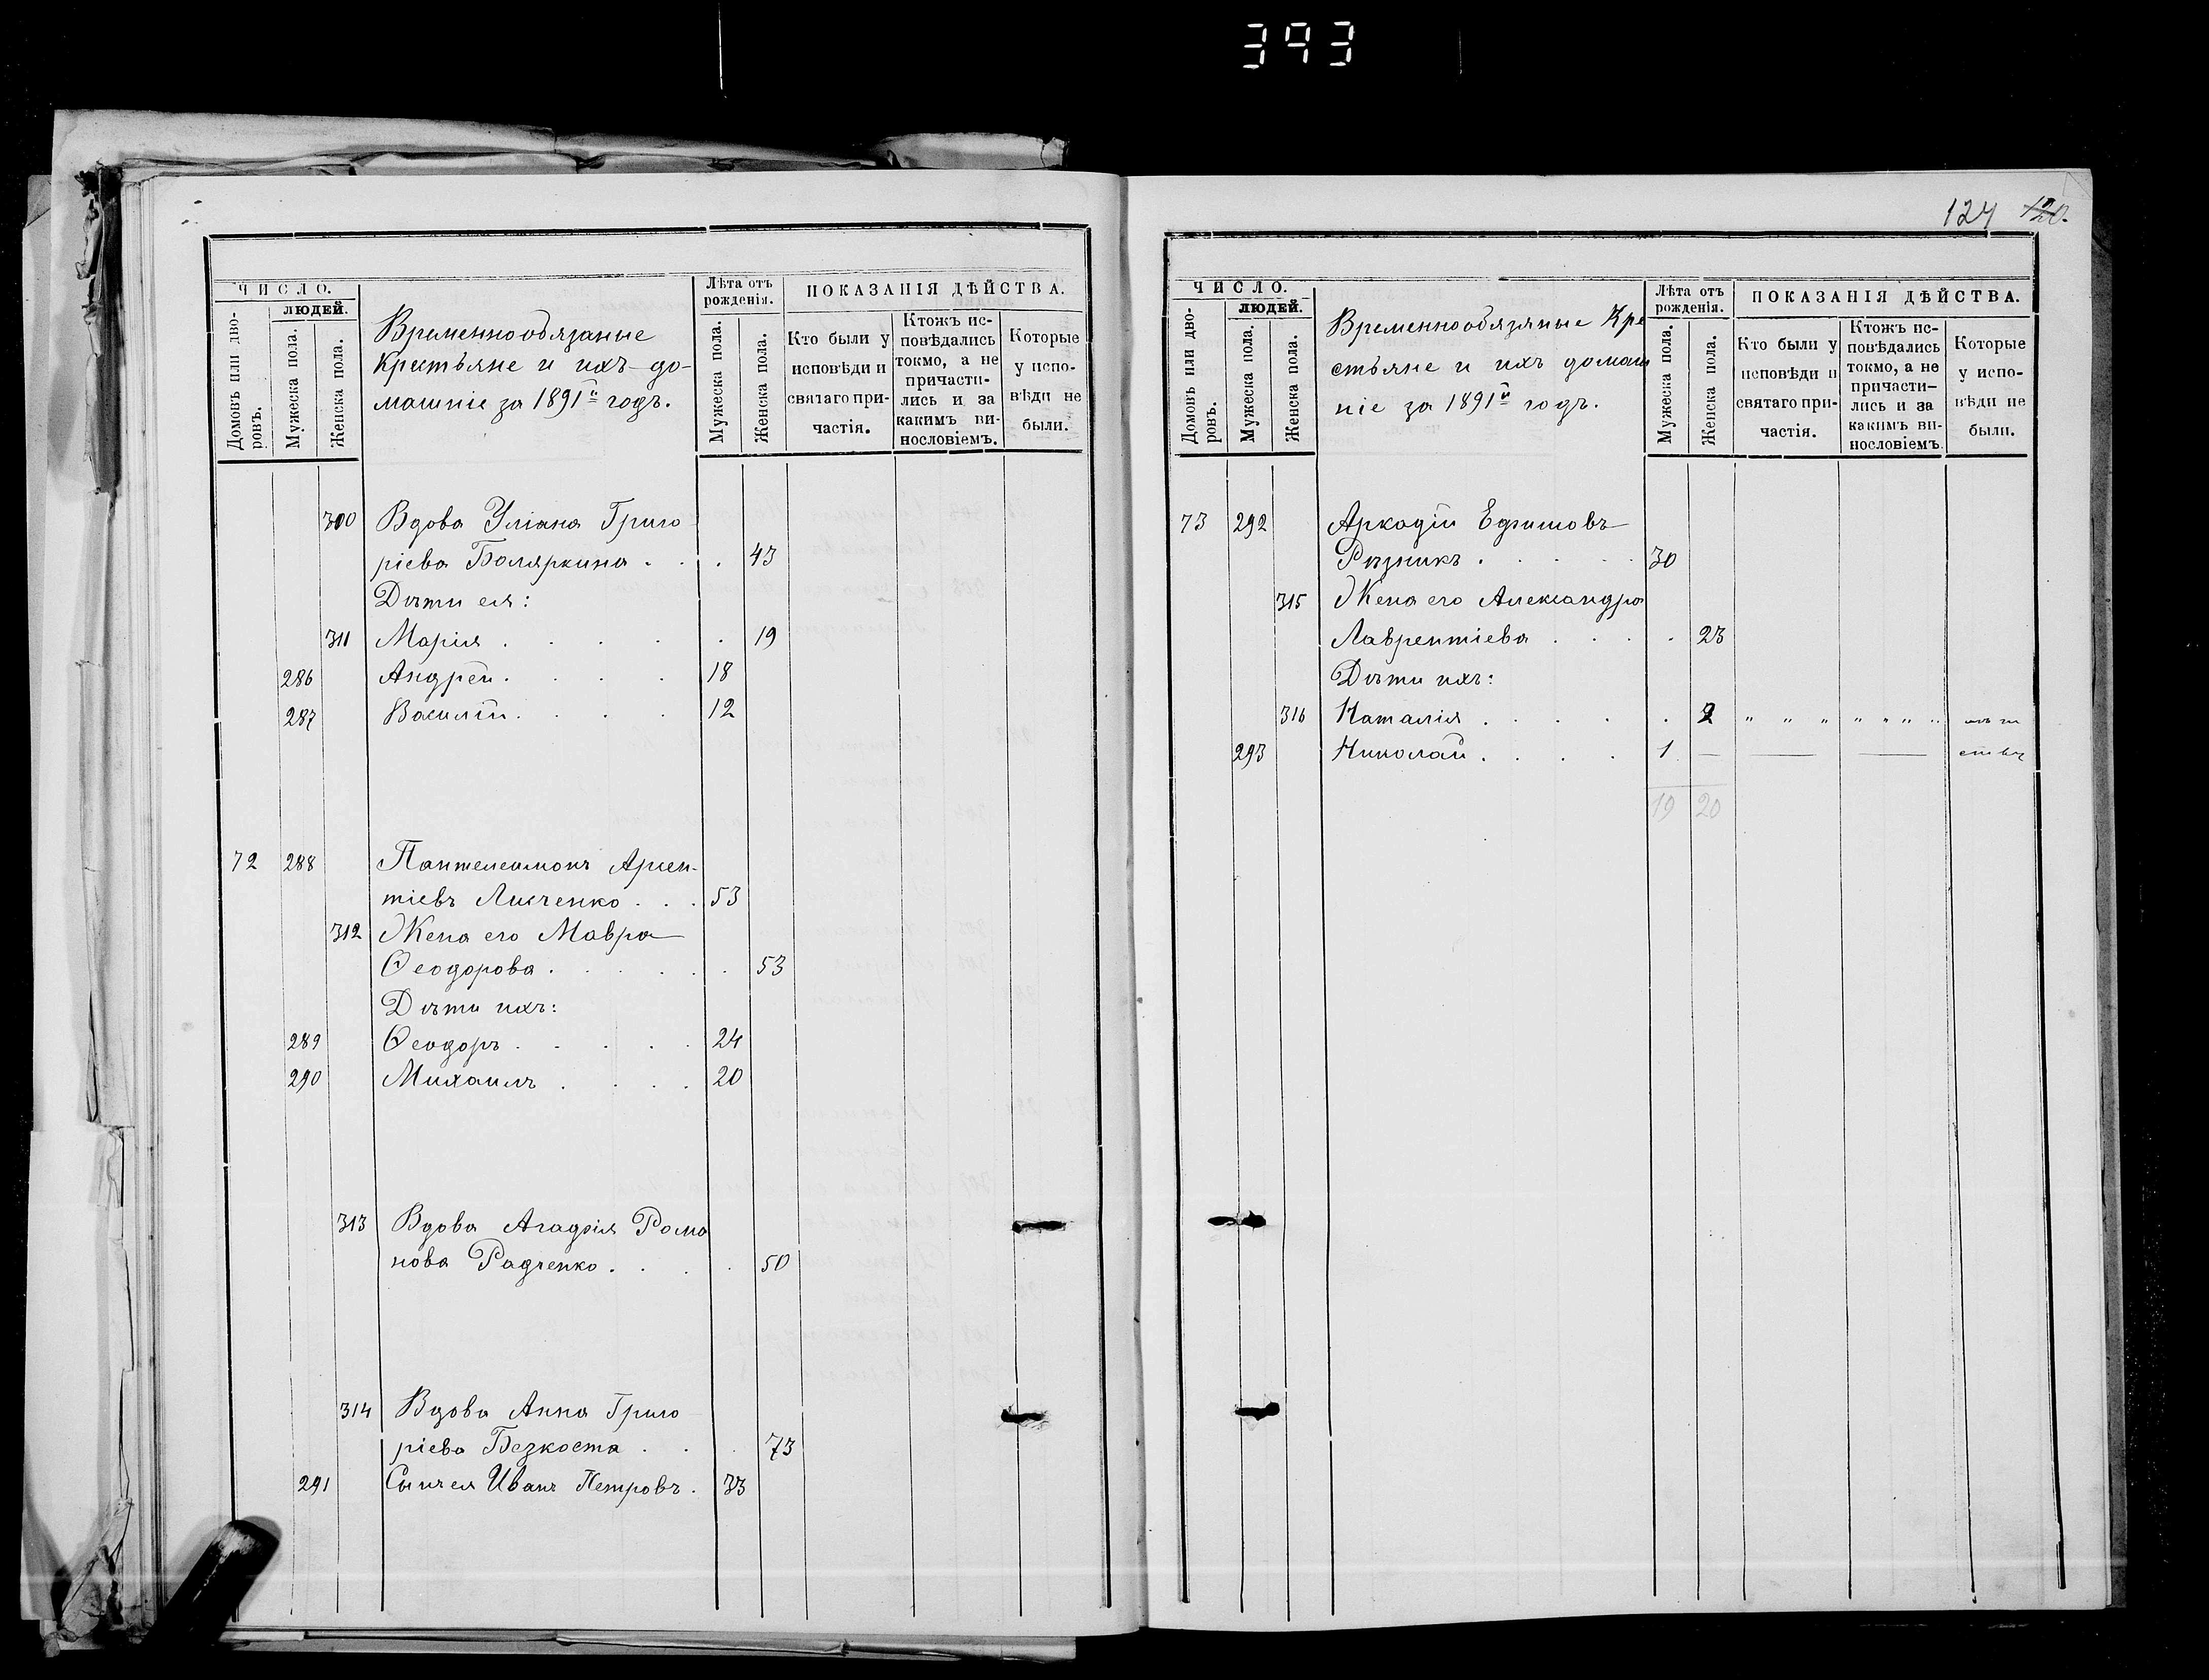 393
ЧИСЛО.
ЛЮДЕЙ.
Домовъ или дворовъ.
Мужеска пола.
Женска пола.
Временнообязаные
крестьяне и ихъ до-
машніе за 1891й годъ.
Лѣта отъ
рожденія.
Мужеска пола.
Женска пола.
ПОКАЗАНІЯ ДѢЙСТВА.
Кто были у
исповѣди и
святаго при-
частія.
Ктожъ ис-
повѣдались
токмо, а не
причасти-
лись и за
какимъ ви-
нословіемъ.
Которые
у испо-
вѣди не
были.
300 Вдова Уліана Григо
ріева Боляркина . . . 43
Дѣти ея:
311 Марія . . . . . 19
286 Андрей . . . . 18
287 Василій . . . . 12
72 288 Пантелеимонъ Арсен-
тіевъ Лисченко . . . 53
312 Жена его Мавра
Ѳеодорова . . . . . 53
Дѣти ихъ:
289 Ѳеодоръ . . . . . 24
290 Михаилъ . . . . 20
313 Вдова Агафія Рома
нова Радченко . . . . 50
314 Вдова Анна Григо
ріева Безкоста . . . 73
291 Сынъ ея Иванъ Петровъ . 33
124 120.
ЧИСЛО.
ЛЮДЕЙ.
Домовъ или дворовъ.
Мужеска пола.
Женска пола.
Временнообязаные Кре
стьяне и ихъ домаш
ніе за 1891й годъ.
Лѣта отъ
рожденія.
Мужеска пола.
Женска пола.
ПОКАЗАНІЯ ДѢЙСТВА.
Кто были у
исповѣди и
святаго при-
частія.
Ктожъ ис-
повѣдались
токмо, а не
причасти-
лись и за
какимъ ви-
нословіемъ.
Которые
у испо-
вѣди не
были.
73 292 Аркадій Ефимовъ
Рѣзникъ . . . . . 30
315 Жена его Александра
Лаврентіева . . . . 23
Дѣти ихъ:
316 Наталія . . . . . 2 " " " " " " "
293 Николай . . . . 1 — — —
19 20